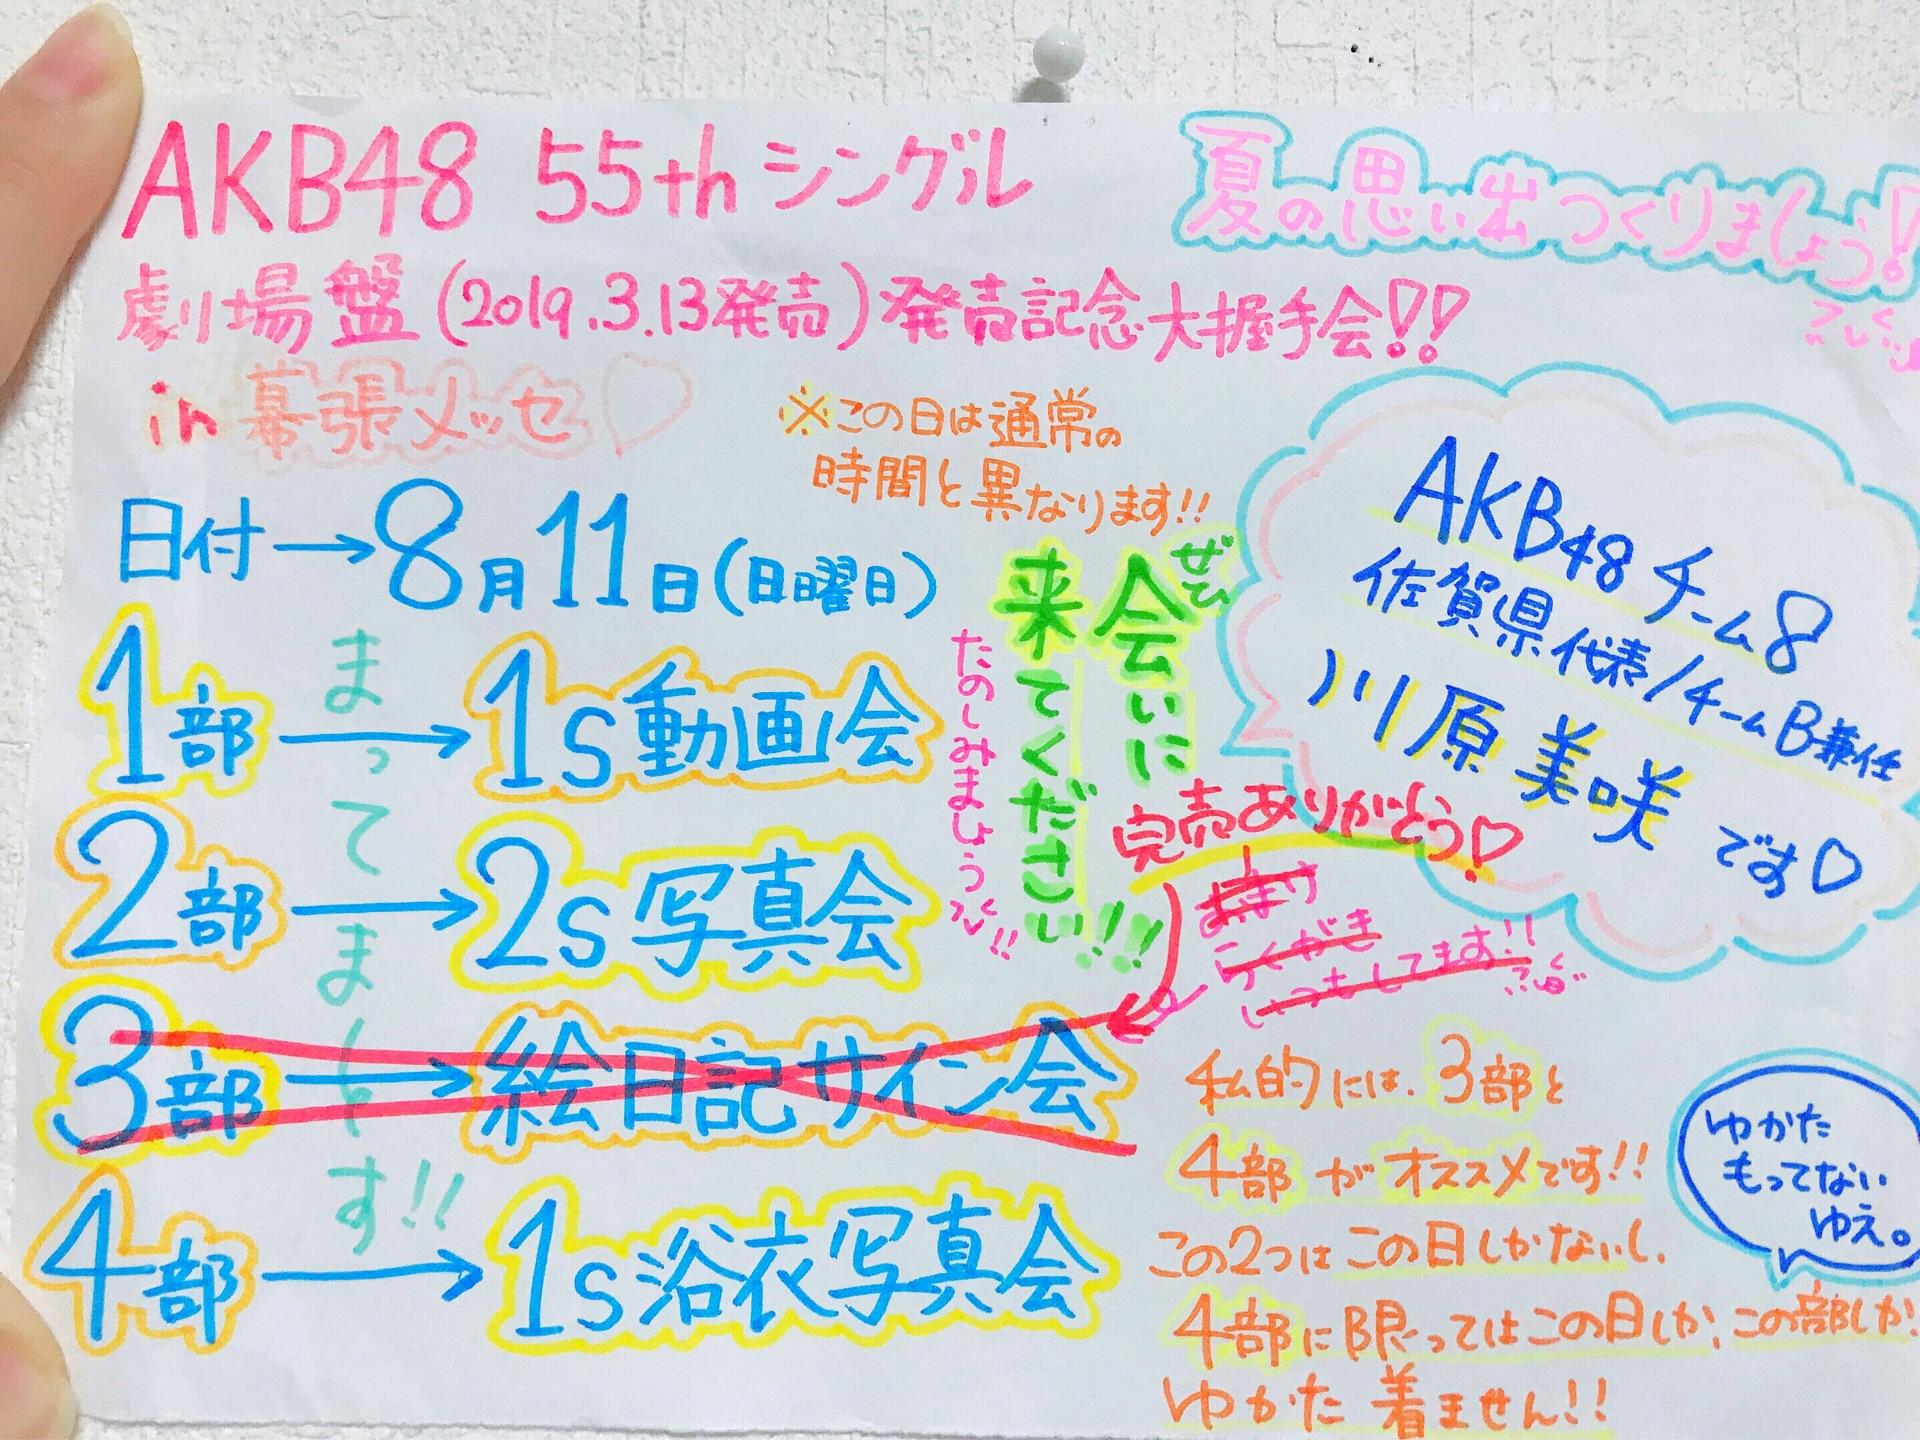 AKB48 55thシングル
夏の思い出つくりましょう!
劇場盤(2019.3.13発売)発売記念大握手会!!
in 幕張メッセ♡
※この日は通常の
時間と異なります!!
日付→8月11日(日曜日)
1部→1s動画会
2部→2s写真会
3部→絵日記サイン会
4部→1s浴衣写真会
まってまーす!!
ぜひ
会いに
来てください!!
たのしみましょう
AKB48チーム8
佐賀県代表/チームB兼任
川原美咲です♡
完売ありがとう♡
らくがき
いつもしてます!!
私的には、3部と
4部がオススメです!!
この2つはこの日しかないし、
4部に限ってはこの日しか、この部しか
ゆかた着ません!!
ゆかた
もってない
ゆえ。